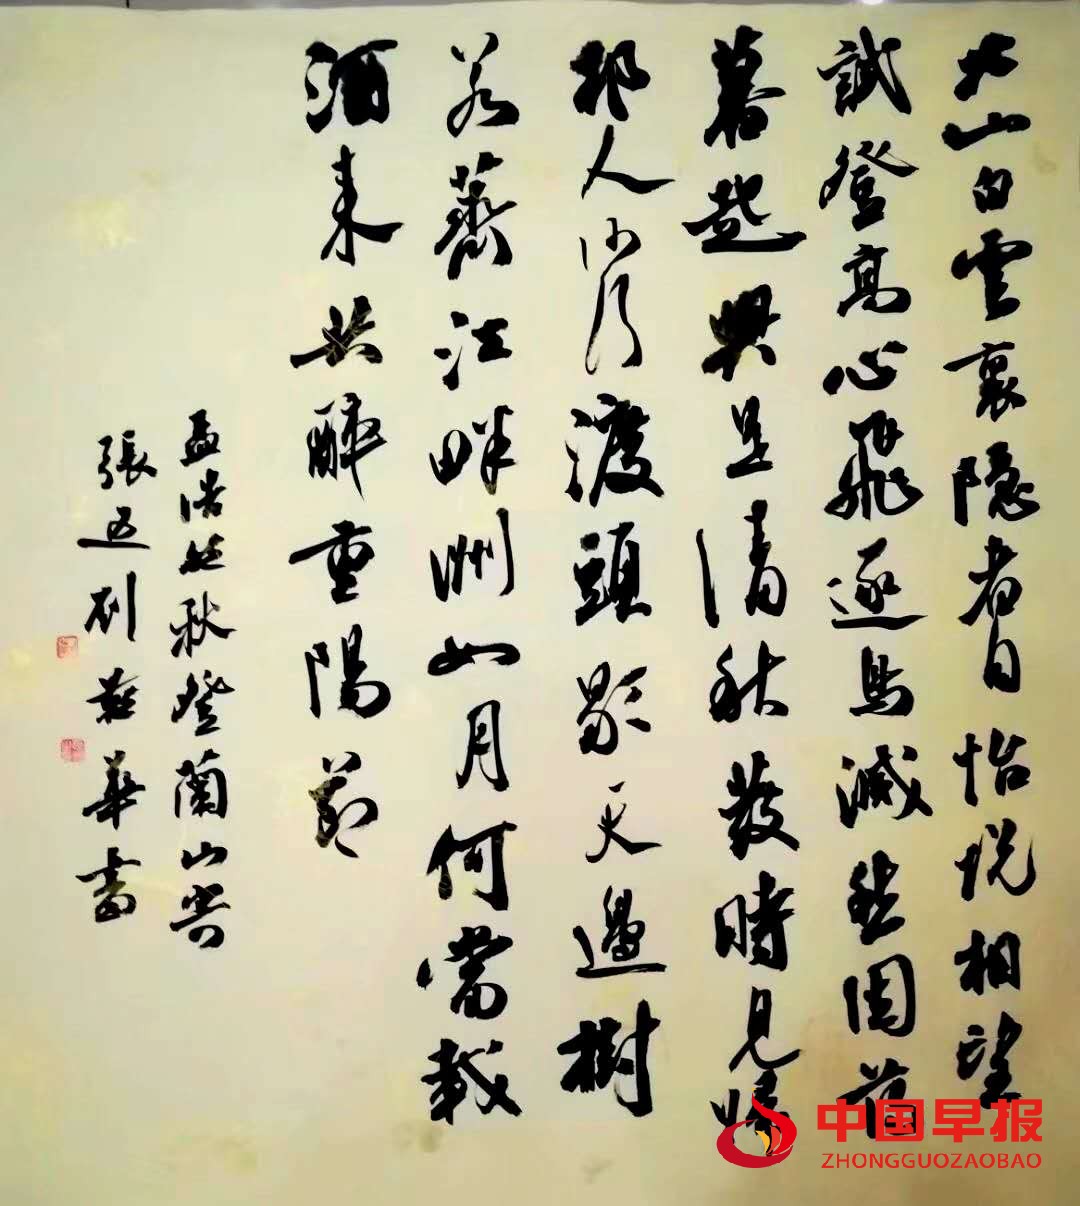 北山白雲裏隱者自怡悦相望
試登高心飛逐鳥滅愁因薄
暮起興是清秋發時見歸
邨人沙行渡頭歇天邊樹
若薺江畔洲如月何當載
酒來共醉重陽節
孟浩然秋登蘭山寄
張五刘華書
中国早报
ZHONGGUOZAOBAO